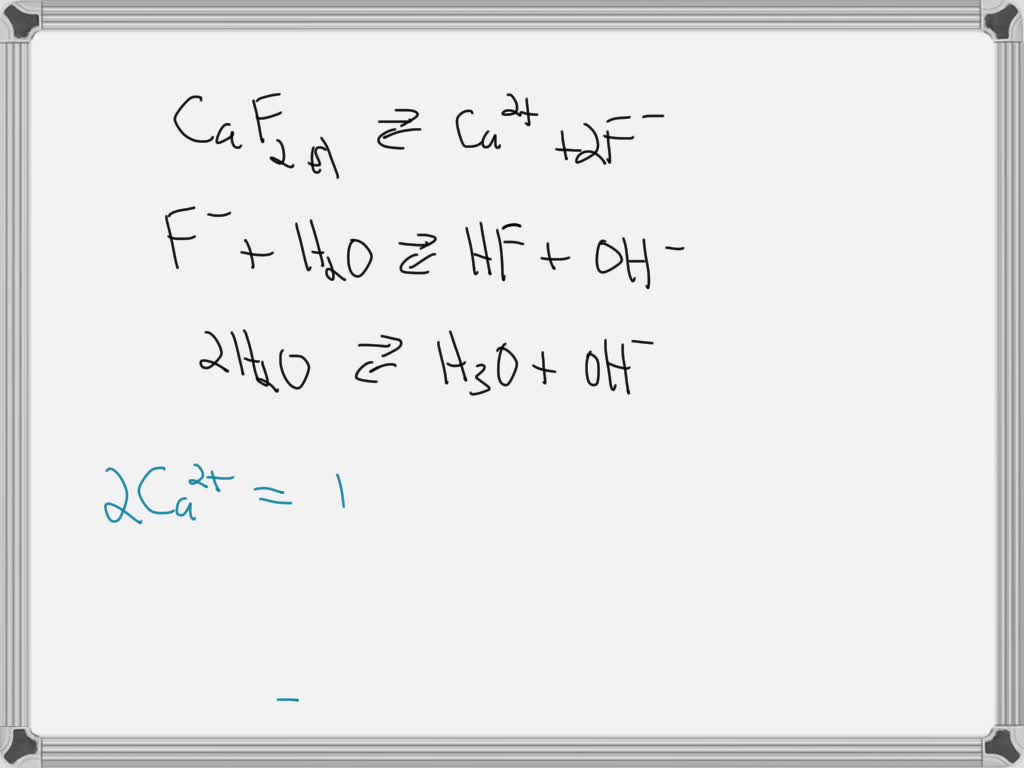 CaF₂(s) ⇌ Ca²⁺ + 2F⁻
F⁻ + H₂O ⇌ HF + OH⁻
2H₂O ⇌ H₃O + OH⁻
2Ca²⁺ = 1
–